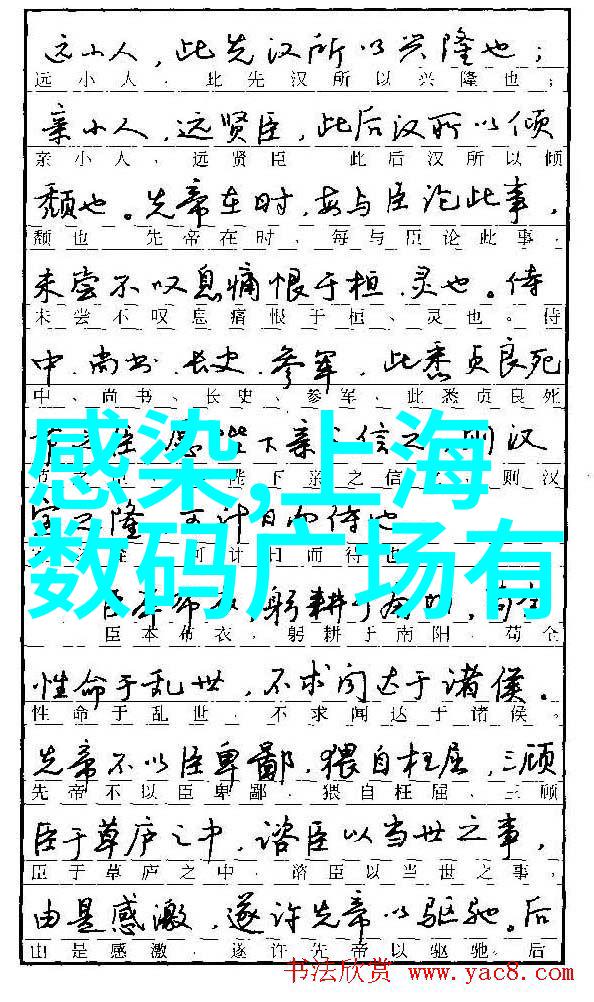 远小人，此先汉所以兴隆也；
远小人，此先汉所以兴隆也；
亲小人，远贤臣，此后汉所以倾
亲小人，远贤臣 此后汉所以倾
颓也。先帝在时，每与臣论此事，
颓也 先帝在时，每与臣论此事，
未尝不叹息痛恨于桓、灵也。侍
未尝不叹息痛恨于桓、灵也。侍
中、尚书、长史、参军，此悉贞良死
中、尚书、长史、参军，此悉贞良死
感染,上海
陛下亲之信之 则汉
陛下亲之信之 则汉
数码广场有
室之隆 可计日而待也
可计日而待也
臣本布衣，躬耕于南阳，苟全
臣本布衣，躬耕于南阳，苟全
性命于乱世，不求闻达于诸侯。
性命于乱世，不求闻达于诸侯。
先帝不以臣卑鄙，猥自枉屈，三顾
先帝不以臣卑鄙，猥自枉屈、三顾
臣于草庐之中，谘臣以当世之事，
臣于草庐之中，谘臣以当世之事，
由是感激，遂许先帝以驱驰。后
由是感激，遂许先帝以驱驰。后
书法欣赏 www.yac8.com